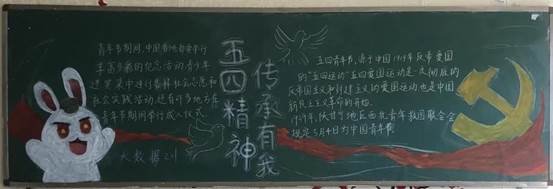 青年节期间,中国各地都要举行
丰富多彩的纪念活动青少年
还要集中进行各种社会志愿和
社会实践活动,还有许多地方在
青年节期间举行成人仪式
大数据211
五四精神
传承有我
五四青年节,源于中国1919年反帝爱国
的"五四运动"五四爱国运动是一次彻底的
反帝国主义和封建主义的爱国运动也是中国
新民主主义革命的开始,
1939年,陕甘宁边区西北青年救国联合会
规定5月4日为中国青年节